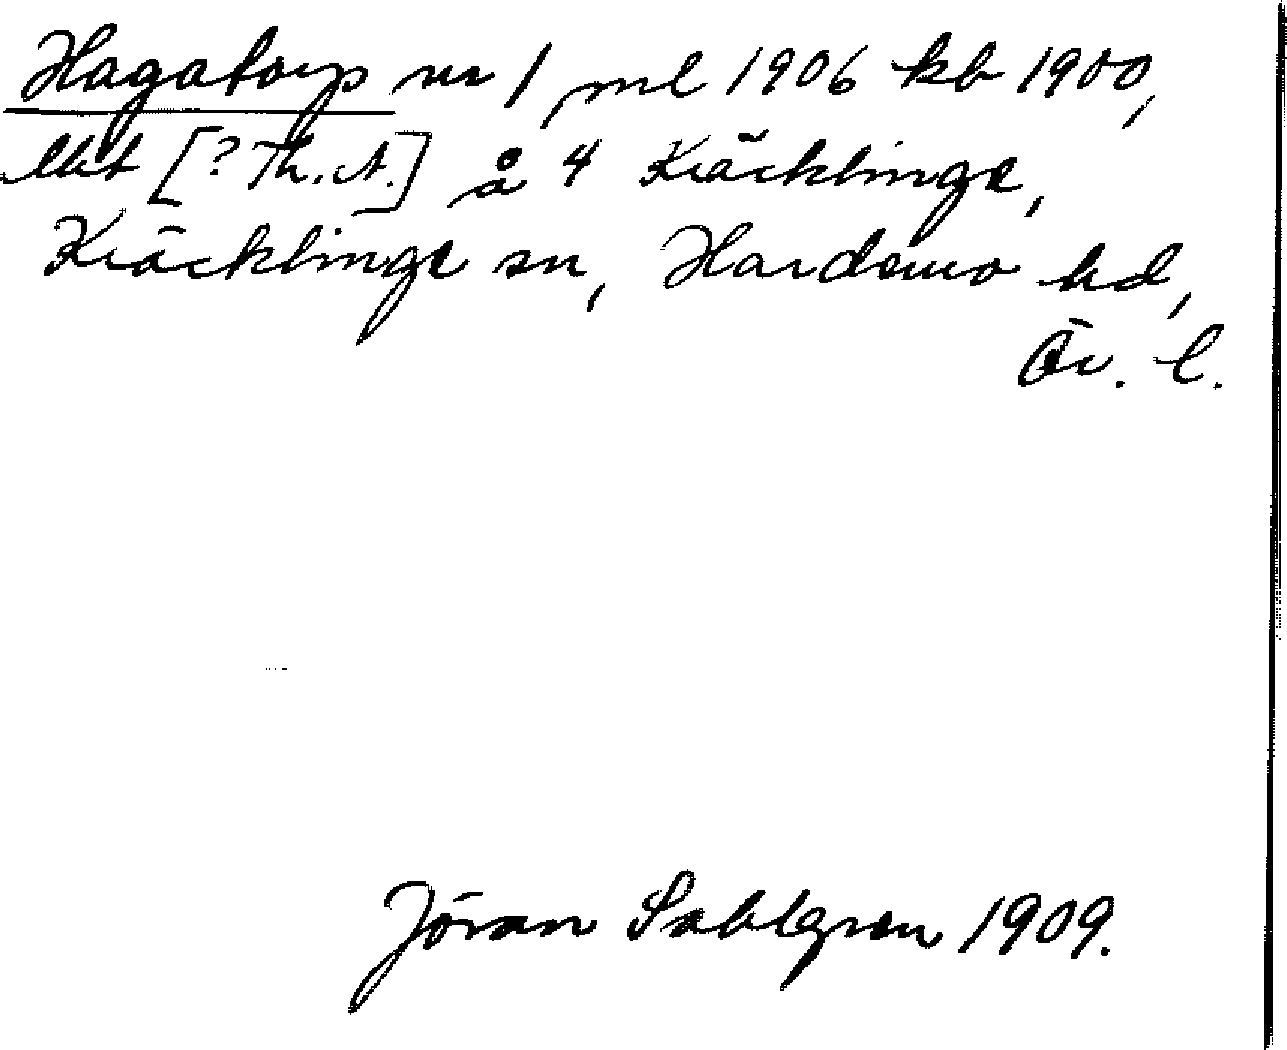 Hagatorp nr 1, ml 1906 kb 1900,
[? Th. A.] å 4 Kräcklinge,
Kräcklinge sn, Hardemo hd,
Ör. l.
Jöran Sahlgren 1909.